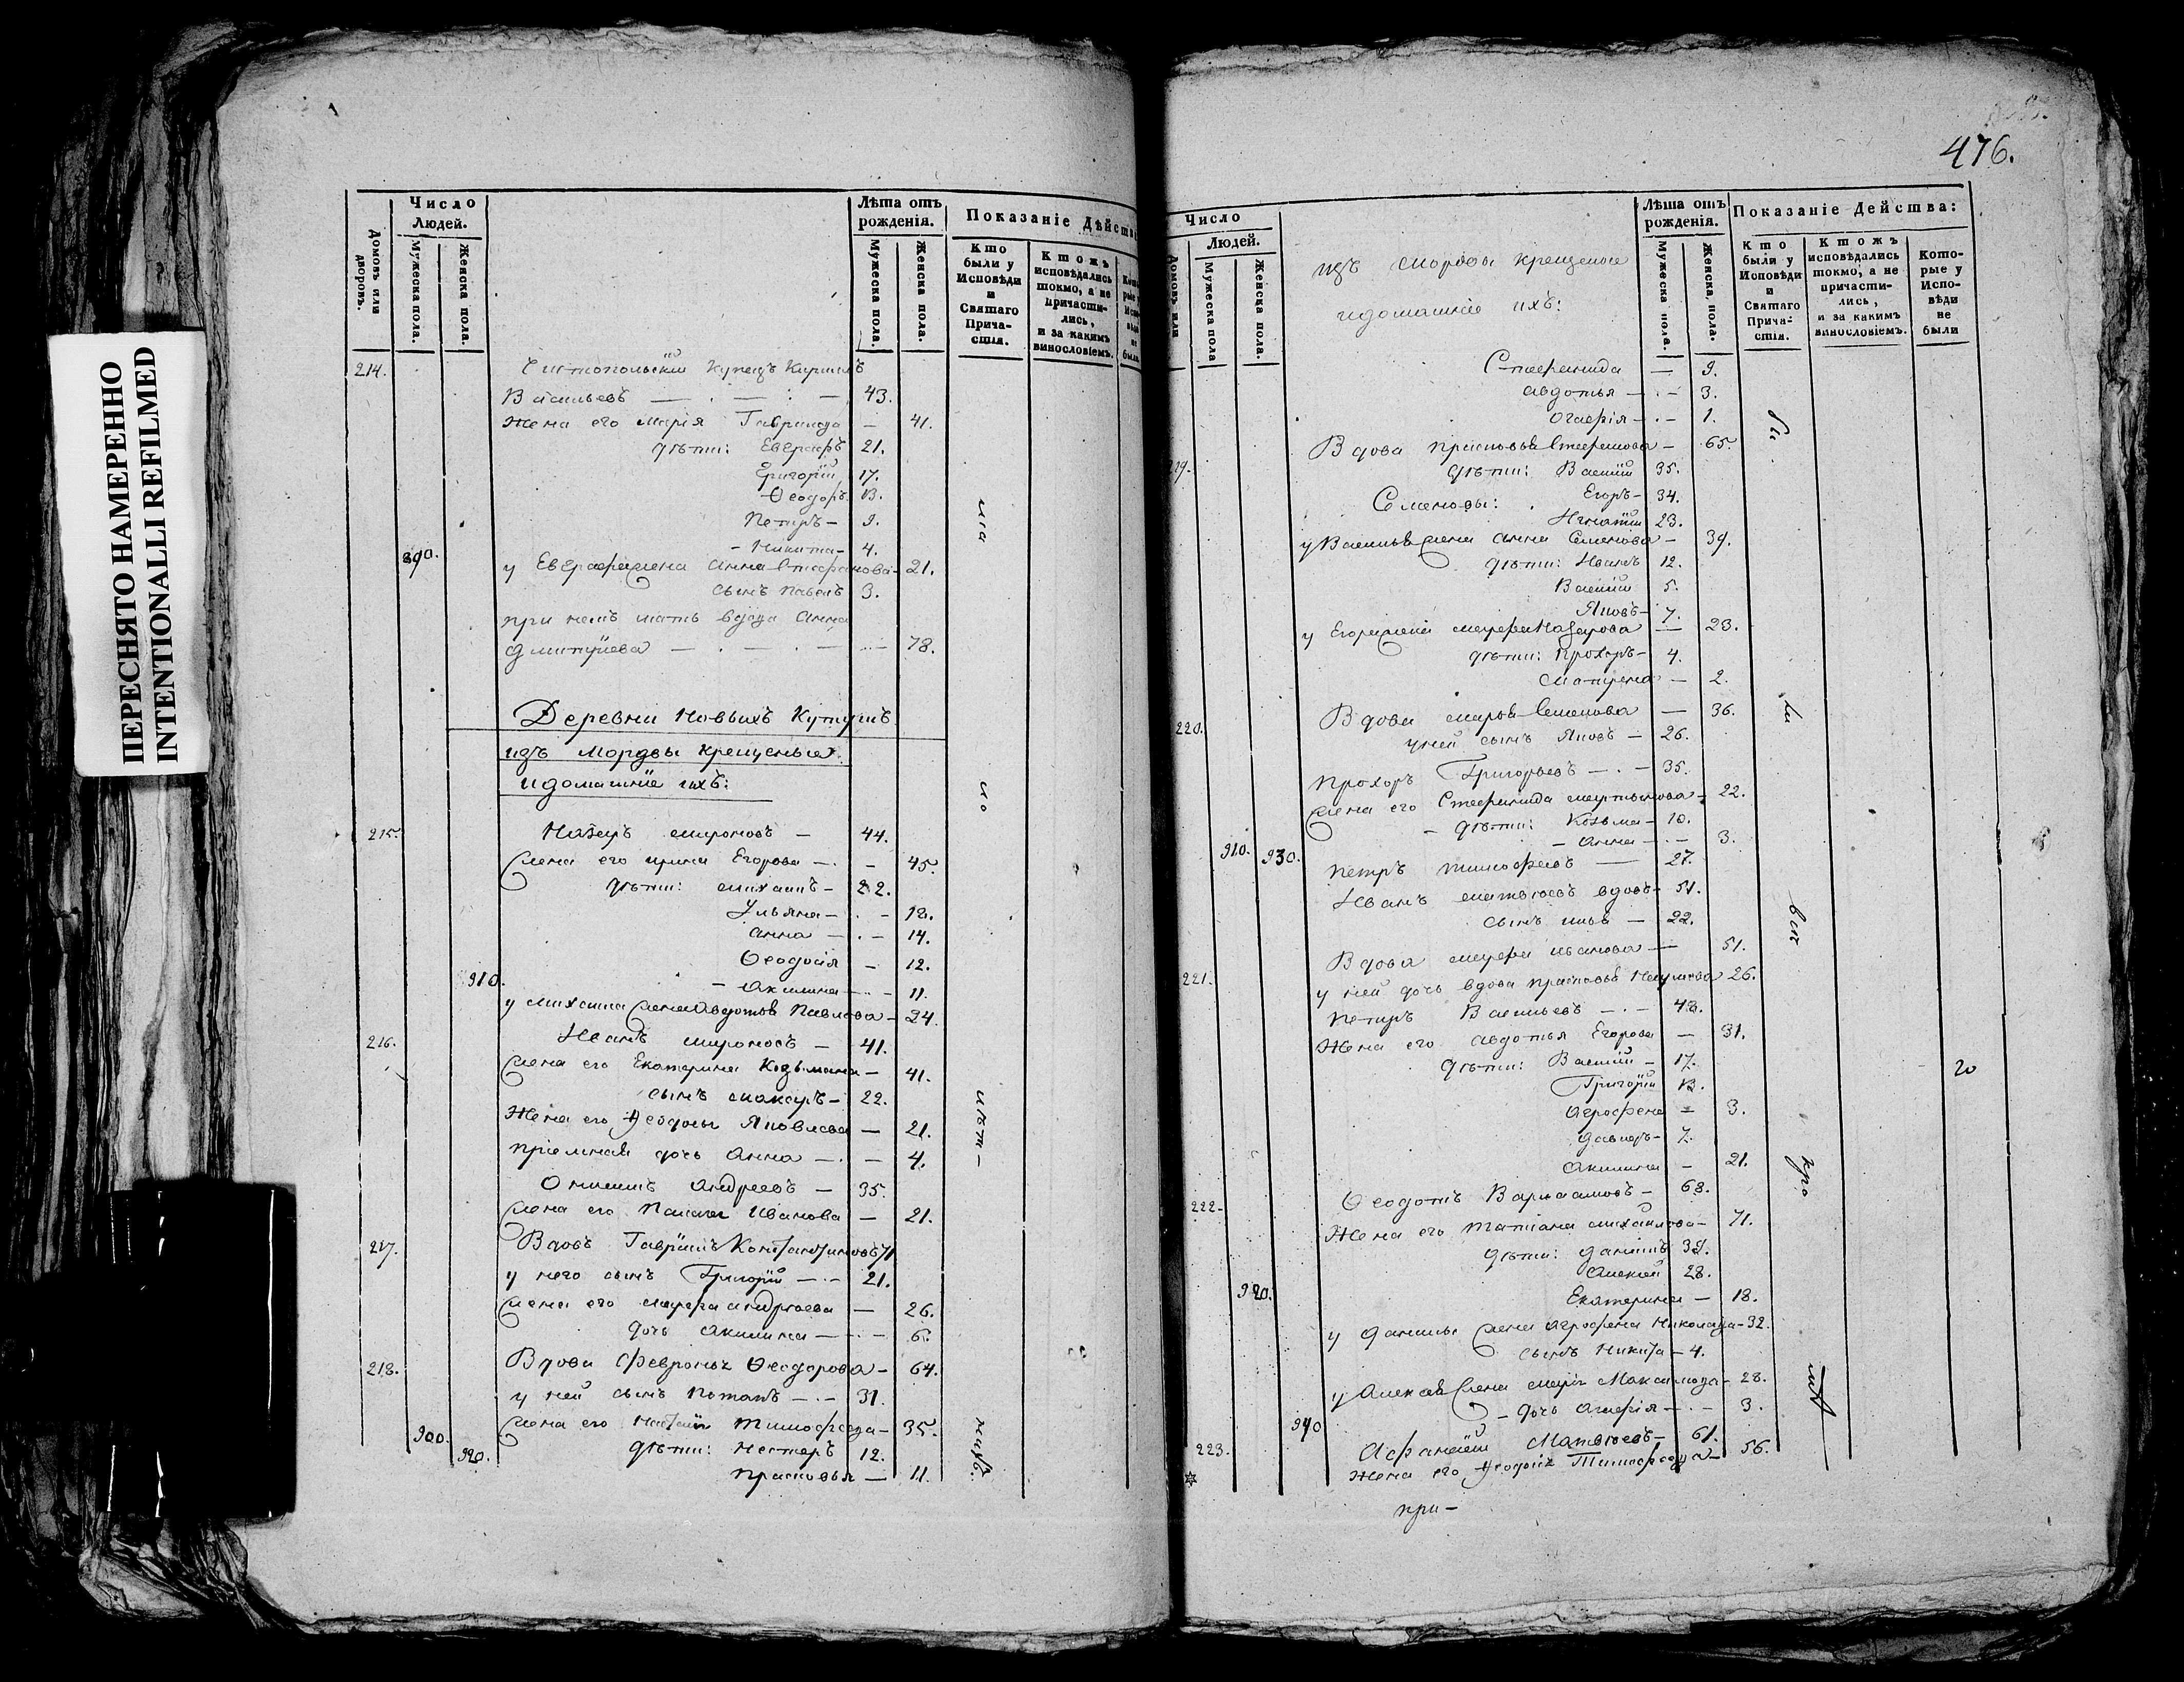 ПЕРЕСНЯТО НАМЕРЕННО
INTENTIONALLI REFILMED
Домовъ или дворовъ.
Число Людей.
Мужеска пола.
Женска пола.
Лѣта отъ рожденія.
Мужеска пола.
Женска пола.
Показаніе Дѣйства
Кто были у Исповѣди и Святаго Причастія.
Ктожъ исповѣдались токмо, а не причастились, и за какимъ винословіемъ.
214. Чистопольскій купецъ Кириллъ
Васильевъ — 43.
Жена его Марія Гаврилова — 41.
дѣти: Евграфъ 21.
Григорій 17.
Ѳеодоръ 13.
Петръ — 9.
890. Никита — 4.
у Евграфа жена Анна Стефанова — 21.
сынъ Павелъ 3.
при немъ мать вдова Анна
Дмитріева — 78.
Деревни Новыхъ Кутушъ
изъ Мордвы крещеныя
и домашніе ихъ:
215. Назаръ Мироновъ — 44.
Жена его Ирина Егорова — 45.
дѣти: Михаилъ — 22.
Ульяна — 18.
Анна — 14.
Ѳеодосія — 12.
910. Акилина — 11.
у Михаила жена Авдотья Павлова — 24.
216. Иванъ Мироновъ — 41.
Жена его Екатерина Козьмина — 41.
сынъ — 22.
Жена его Ѳеодосья Яковлева — 21.
пріемная дочь Анна — 4.
Андреевъ — 35.
Жена его Иванова — 21.
217. Вдовъ Гаврилъ Константиновъ 71
у него сынъ Григорій — 21.
Жена его Андреева — 26.
дочь Акилина — 6.
218. Вдова Февронья Ѳеодорова — 64.
у ней сынъ Потапъ — 31.
Жена его Тимофеева — 35.
900. дѣти: Несторъ 12.
920. Прасковья — 11.
476.
Число Людей.
Домовъ или
Мужеска пола
Женска пола.
изъ Мордвы крещеные
и домашніе ихъ:
Лѣта отъ рожденія.
Мужеска пола.
Женска пола.
Показаніе Действа:
Кто были у Исповѣди и Святаго Причастія.
Ктожъ исповѣдались токмо, а не причастились, и за какимъ винословіемъ.
Которые у Исповѣди не были
Стефанида — 9.
Авдотья — 3.
— 1.
219. Вдова Прасковья Стефанова — 65.
дѣти: Василій 35.
Семеновы: Егоръ — 34.
Игнатій 23.
у Василья жена Анна Семенова — 39.
дѣти: Иванъ 12.
Василій 5.
Яковъ — 7.
у Егора жена Марфа Назарова — 23.
дѣти: Прохоръ — 4.
Матрена — 2.
220. Вдова Марья Семенова — 36.
у ней сынъ Яковъ — 26.
Прохоръ Григорьевъ — 35.
Жена его Стефанида Мартынова — 22.
дѣти: Козьма — 10.
910. 930. Анна — 3.
Петръ Тимофеевъ — 27.
Иванъ Матвѣевъ вдовъ — 51.
сынъ — 22.
221. Вдова Марфа Иванова — 51.
у ней дочь вдова Прасковья Наумова 26.
Петръ Васильевъ — 48.
Жена его Авдотья Егорова — 31.
дѣти: Василій — 17.
Григорій 13.
Агрофена — 3.
Давыдъ — 7.
Акилина — 21.
222. Ѳеодотъ Варлаамовъ — 68.
Жена его Татіана Михайлова — 71.
дѣти: Данилъ 35.
Алексій 28.
920. Екатерина — 18.
у Данилы жена Агрофена Николаева — 32.
сынъ Никита — 4.
у Алексѣя жена Марія Максимова — 28.
940 дочь — 3.
223. Афанасій Матвѣевъ — 61.
Жена его Ѳеодосія Тимофеева — 56.
при —